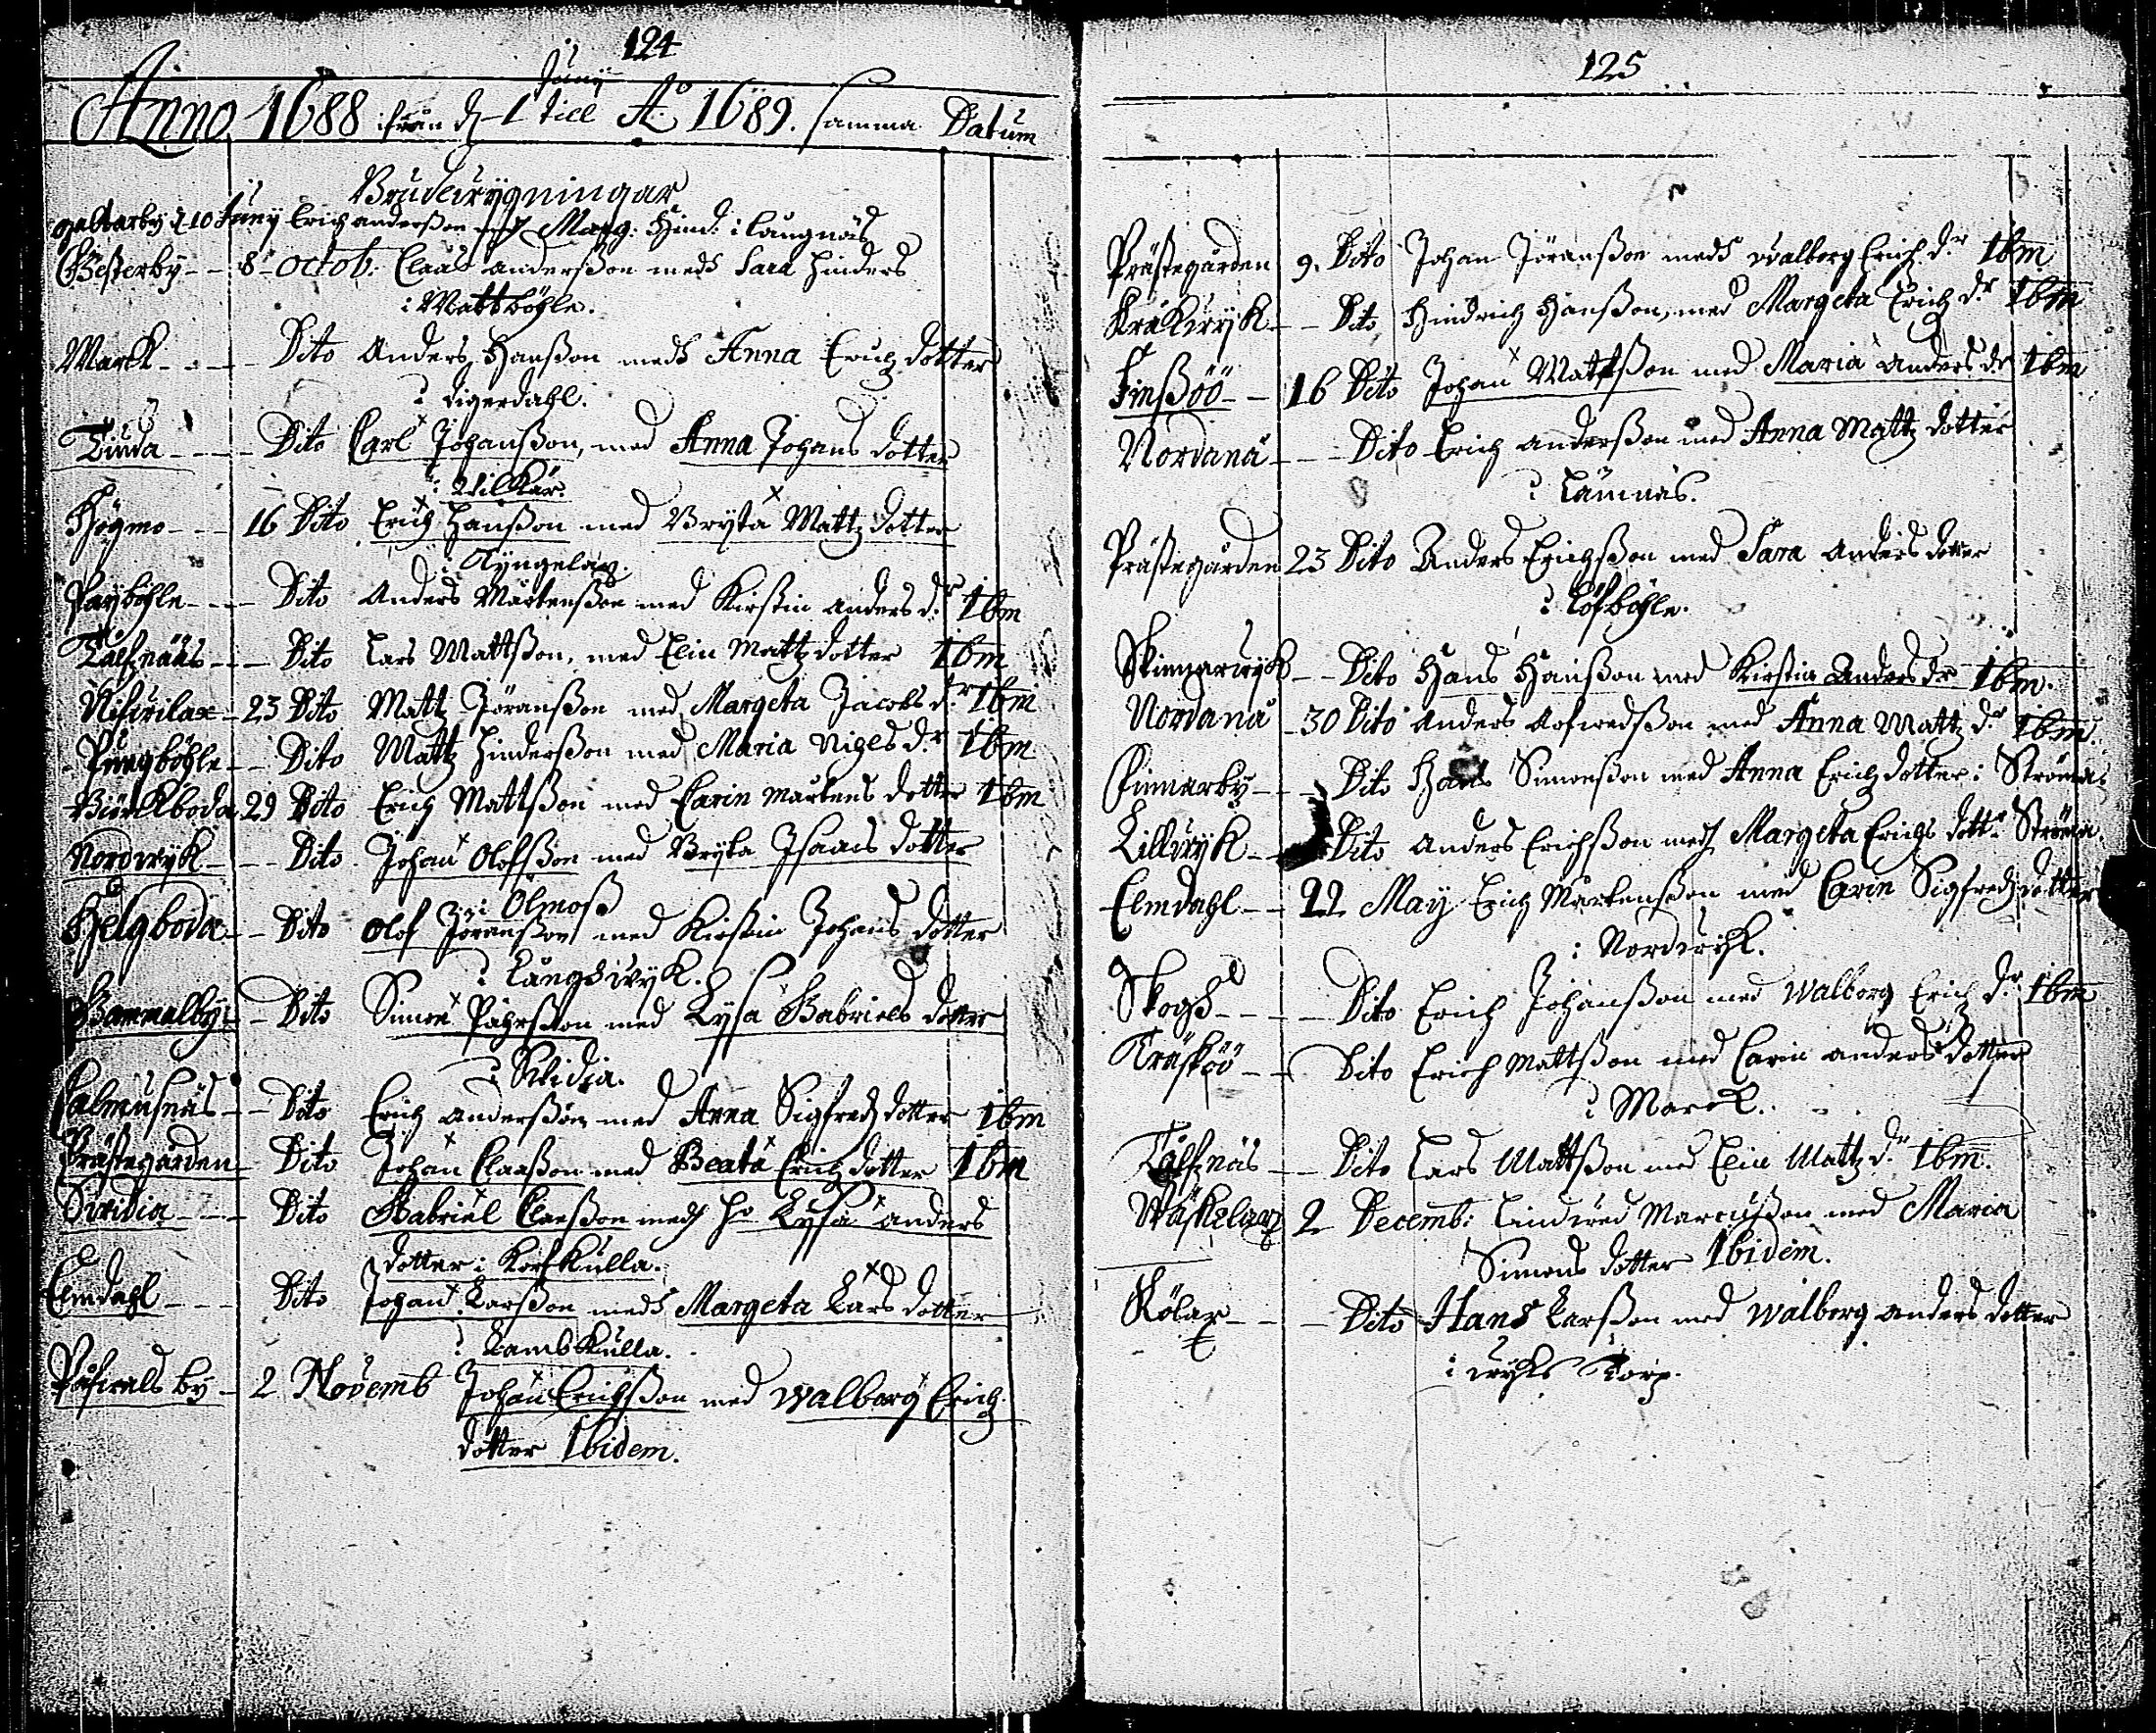 124
Junij
Anno 1688 ifrån d. 1 till Ao 1689. samma Datum
Brudewygningar
galtarby d 10 Junij Erich anderßon med Marg: Hind: i Laugnäs
Gästerby - - 8 - octob: Claas anderßon meds Sara hinders
i Mattböhle.
Mark - - - Dito Anders Hanßon meds Anna Erichz dotter
i Digerdahl.
Dito Carl Johanßon, med Anna Johans dotter
i Wilkär.
Högmo - - - 16 Dito Erich Hanßon med Bryta Mattz dotter
i Kyngelax.
Payböhle - - - Dito Anders Mårtenßon med Kirstin anders dr Ibm
Tålfznääs - - - Dito Lars Mattßon, med Elin Mattz dotter Ibm
23 Dito Mattz Jöranßon med Margeta Jacobs dr Ibm
Pungböhle - - Dito Mattz hinderßon med Maria Nigls dr Ibm
Biörkboda 29 Dito Erich Mattßon med Carin Mårtens dotter Ibm
Nordwyk - - - Dito Johan Olofßon med Bryta Isaacs dotter
i Ölmoß
Helgboda - - Dito Olof Jöranßon med Kirstin Johans dotter
i Långswyk.
Gammalby - - Dito Simon Påhrßon med Lysa Gabriels dotter
i Swidia.
Calmusnäs - - Dito Erich anderßon med Anna Sigfredz dotter Ibm
Prästegården - Dito Johan Claaßon med Beata Erichz dotter Ibm
Swidia - - - Dito Gabriel Claeßon meds ho Lysa anders
dotter i Korfkulla.
Elmdahl - - - Dito Johan Larßon meds Margeta Lars dotter
i Lambkulla.
by - 2 Novemb Johan Erichßon med Walborg Erich
dotter Ibidem.
125
Prästegården 9. Dito Johan Jöranßon meds Walborg Erich dr Ibm
Kråkwyk - - Dito Hindrich Hanßon, med Margeta Erich dr Ibm
Finßöö - - 16 Dito Johan Mattßon med Maria Anders dr Ibm
Nordanå - - - Dito Erich anderßon med Anna Mattz dotter
i Lämnäs.
Prästegården 23 Dito Anders Erichßon med Sara Anders dotter
i Löfböhle.
Skinnarwyk - - Dito Hans Hanßon med Kirstin Anders dr Ibm.
Nordanå - 30 Dito Anders med Anna Mattz dr Ibm.
Pinnarby - - - Dito Hans Simonßon med Anna Erichz dotter i Ströma.
Lillwyk - - Dito Anders Erichßon meds Margeta Erichs dottr Ströma.
Elmdahl - - 22 May Erich Mårtenßon med Carin Sigfredz dotter
i Nordwik.
Skogh - - - - Dito Erich Johanßon med Walborg Erich dr Ibm
Träsköö - - Dito Erich Mattßon med Carin anders dotter
i Marck.
Tålfznäs - - Dito Lars Mattßon med Elin Mattz dr Ibm.
Wäskelax 2 Decemb: Lindwed Marcußon med Maria
Simons dotter Ibidem.
Rölax - - - Dito Hans Larßon med Walborg anders dotter
i wyks Torp.